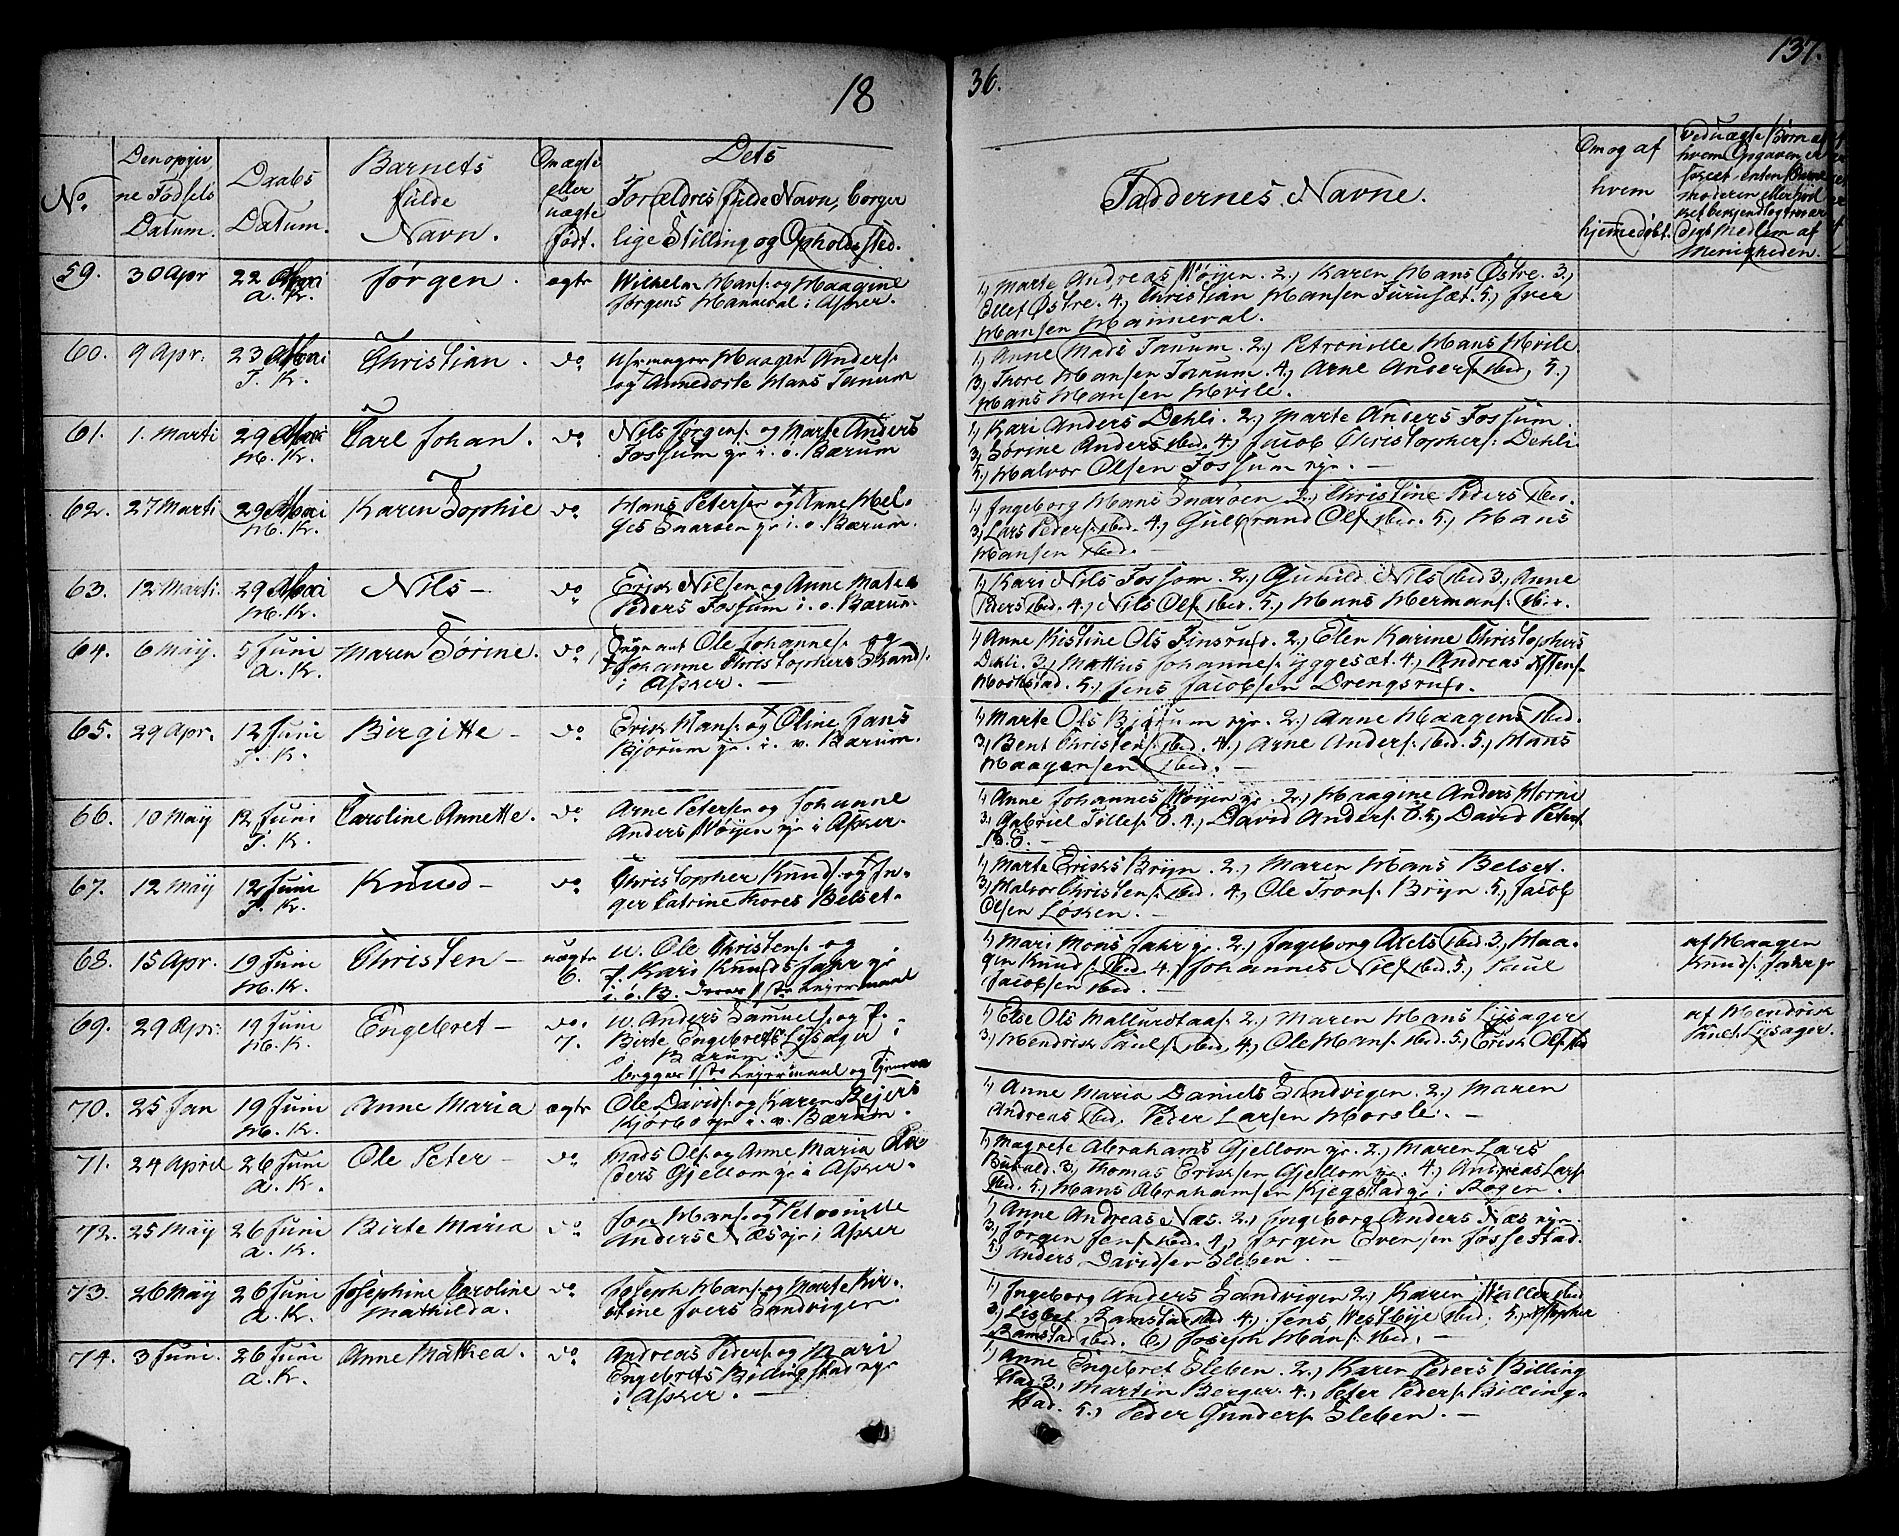 18
36.
137.
No.
Den opgivne Fødsels Datum.
Daabs Datum.
Barnets fulde Navn.
Om ægte eller uægte født.
Dets Forældres fulde Navn, borgerlige Stilling og Opholdssted.
Faddernes Navne.
Om og af hvem hjemmedøbt.
59. 30 Apr 22 Mai A. K. Jørgen. ægte
Wilhelm Hans. og Haagine
Jørgens Hanneval i Asker.
1, Marte Andreas Wøyen. 2, Karen Hans Østre. 3,
Ellef Østre. 4, Christian Hansen Furusæt. 5, Iver
Hansen Hanneval.
60. 9 Apr. 23 Mai T. K. Christian. do
Uhrmager Haagen Anders.
og Annedorte Hans Tanum
1, Anne Mads Tanum. 2, Petronille Hans Hvile.
3, Thore Hansen Tanum. 4, Arne Anders. ibid, 5,
Hans Hansen Hvile.
61. 1. Marti 29 Mai H. K. Carl Johan. do
Nils Jørgens. og Marte Anders
Fossum gr. i. ø. Bærum
1, Kari Anders Dehli. 2, Marte Anders Fossum.
3, Sørine Anders ibid. 4, Jacob Christophers. Dehli.
5, Halvor Olsen Fossum eje. —
62. 27 Marti 29 Mai H. K. Karen Sophie do
Hans Petersen og Anne Hel-
ges Snarøen gr. i. ø. Bærum.
1, Ingeborg Hans Snarøen 2, Christine Peders ibid.
3, Lars Peders. ibid. 4, Gulbrand Ols. ibid. 5, Hans
Hansen ibid. —
63. 12 Marti. 29 Mai H. K. Nils — do
Erik Nilsen og Anne Matea
Peders Fossum i. ø. Bærum.
1, Kari Nils Fossom. 2, Gunild Nils ibid 3, Anne
Peders ibid. 4, Nils Ols. ibid. 5, Hans Hermans. ibid.
64. 6 May. 5 Juni A. K. Maren Sørine. do
Ole Johannes. og
Johanne Christophers Strands.
i Asker. —
1, Anne Kistine Ols Finsrud. 2, Elen Karine Christophers
Dehli. 3, Mathis Johannes. Yggesæt. 4, Andreas
Hochstad. 5, Jens Jacobsen Drengsrud.
65. 29 Apr. 12 Juni T. K. Birgitte — do
Erik Hans. og Oline Jans
Bjorum gr. i. v. Bærum.
1, Marte Ols Bjorum eje. 2, Anne Haagens ibid.
3, Bent Christens. ibid. 4, Arne Anders. ibid. 5, Hans
Haagensen ibid. —
66. 10 May 12 Juni T. K. Caroline Annette. do
Arne Petersen og Johanne
Anders Wøyen eje i Asker.
1, Anne Johannes Wøyen gr. 2, Haagine Anders Horni
3, Gabriel Tilles. Ö. 4, David Anders. Ö. 5, David Peters.
67. 12 May 12 Juni T. K. Knud — do
Christopher Knuds. og In-
ger Catrine Thores Belset.
1, Marte Eriks Bryn. 2, Maren Hans Belset.
3, Halvor Christens. ibid. 4, Ole Trons. Bryn 5, Jacob
Olsen Løsken. —
68. 15 Apr. 19 Juni H. K. Christen — uægte 6.
u. Ole Christens. og
f. Kari Knuds Jahr gr.
i. ø. B. Deres 1ste Lejermaal
1, Mari Mons Jahr gr. 2, Ingeborg Axels ibid 3, Haa-
gen Knuds. ibid 4, Johannes Nils. ibid. 5, Paul
Jacobsen ibid. —
af Haagen
Knuds. Jahr gr.
69. 29 Apr. 19 Juni H. K. Engebret — do. 7.
u. Anders Samuels. og f.
Birte Engebrets Lysager i
ø. Bærum
begges 1ste Lejermaal og
1, Else Ols Mallurdtaas. 2, Maren Hans Lysager
3, Hendrik Pauls. ibid, 4, Ole Hans. ibid. 5, Erik Ols. ibid
af Hendrik
Pauls. Lysager.
70. 25 Jan 19 Juni H. K. Anne Maria ægte
Ole Davids. og Karen Bejers
Kjørbo eje i. v. Bærum.
1, Anne Maria Daniels Sandvigen. 2, Maren
Andreas ibid. Peder Larsen Horsle. —
71. 24 April 26 Juni A. K. Ole Peter — do
Mads Ols. og Anne Maria Pe-
ders Gjellom gr i Asker.
1, Magrete Abrahams Gjellom gr. 2, Maren Lars
3, Thomas Eriksen Gjellom gr. 4, Andreas Lars.
ibid. 5, Hans Abrahamsen Kjegstad gr i Røgen.
72. 25 May 26 Juni A. K. Birte Maria do
Jon Hans. og Petronille
Anders Næs gr i Asker
1, Anne Andreas Næs. 2, Ingeborg Anders Næs eje.
3, Jørgen Jens. ibid. 4, Jørgen Evensen Jossestad.
5, Anders Davidsen Sleben.
73. 26 May 26 Juni A. K. Josephine Caroline Mathilda. do
Joseph Hans. og Marte Kir-
stine Ivers Sandvigen
1, Ingeborg Anders Sandvigen 2, Karen Waller ibid
3, Lisbet Ramstad ibid 4, Jens Westbye ibid. 5,
Ramstad ibid. 6, Joseph Hans. ibid. —
74. 3 Juni. 26 Juni A. K. Anne Mathea. do
Andreas Peders. og Mari
Engebrets Billingstad eje
i Asker. —
1, Anne Engebret Sleben. 2, Karen Peders Billing
stad 3, Martin Berger. 4, Peter Peders. Billing-
stad. 5, Peder Gunders. Sleben. —